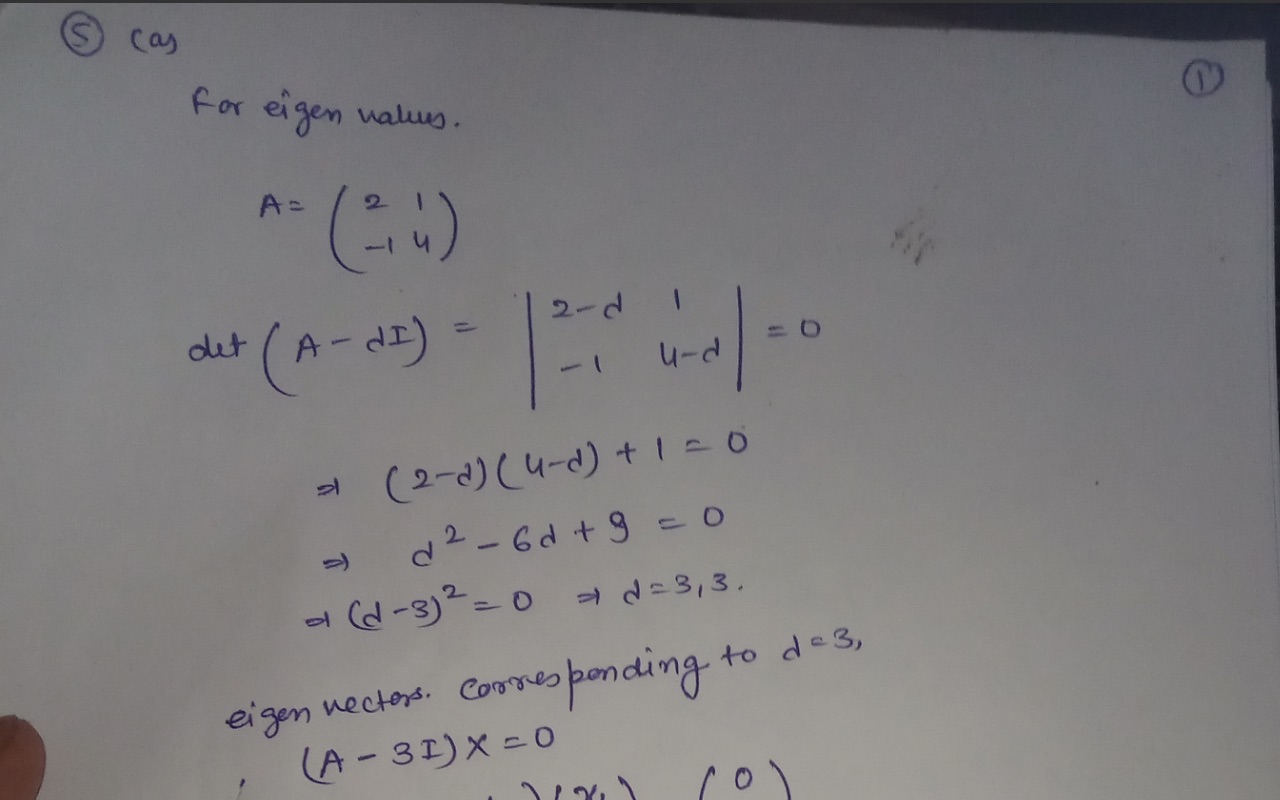 ⑤ (a)
①
For eigen values.
A = ( 2 1
-1 4 )
det (A - dI) = | 2-d 1
-1 4-d | = 0
⇒ (2-d)(4-d) + 1 = 0
⇒ d² - 6d + 9 = 0
⇒ (d-3)² = 0 ⇒ d = 3, 3.
eigen vectors. corresponding to d = 3,
(A - 3I) X = 0